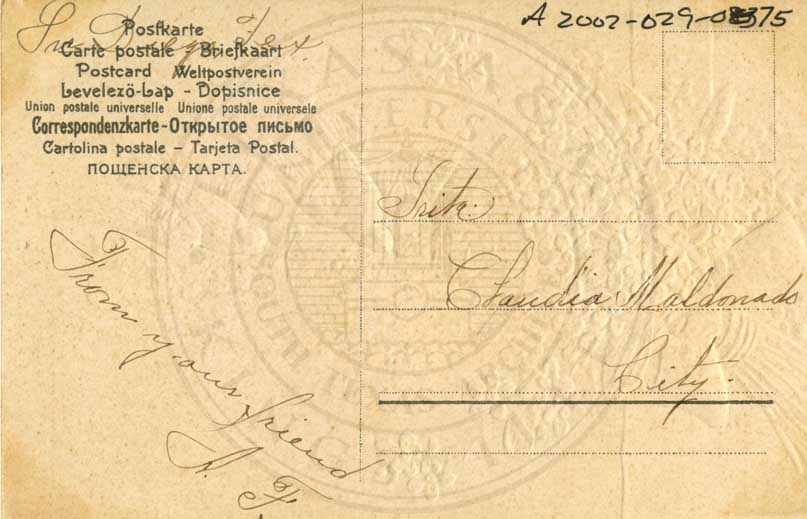 A 2002-029-0375
San Diego, Tex.
Postkarte
Carte postale – Briefkaart
Postcard Weltpostverein
Levelező-Lap – Dopisnice
Union postale universelle Unione postale universale
Correspondenzkarte – Открытое письмо
Cartolina postale – Tarjeta Postal.
ПОЩЕНСКА КАРТА.
From your friend
A. F.
Srita.
Claudia Maldonado
City.